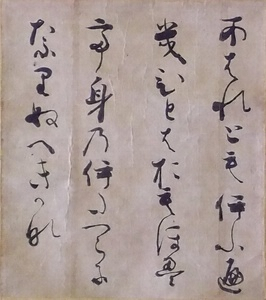 あはれともいふへ
きひとはおもほえ
て身のいたつらに
なりぬへきかな